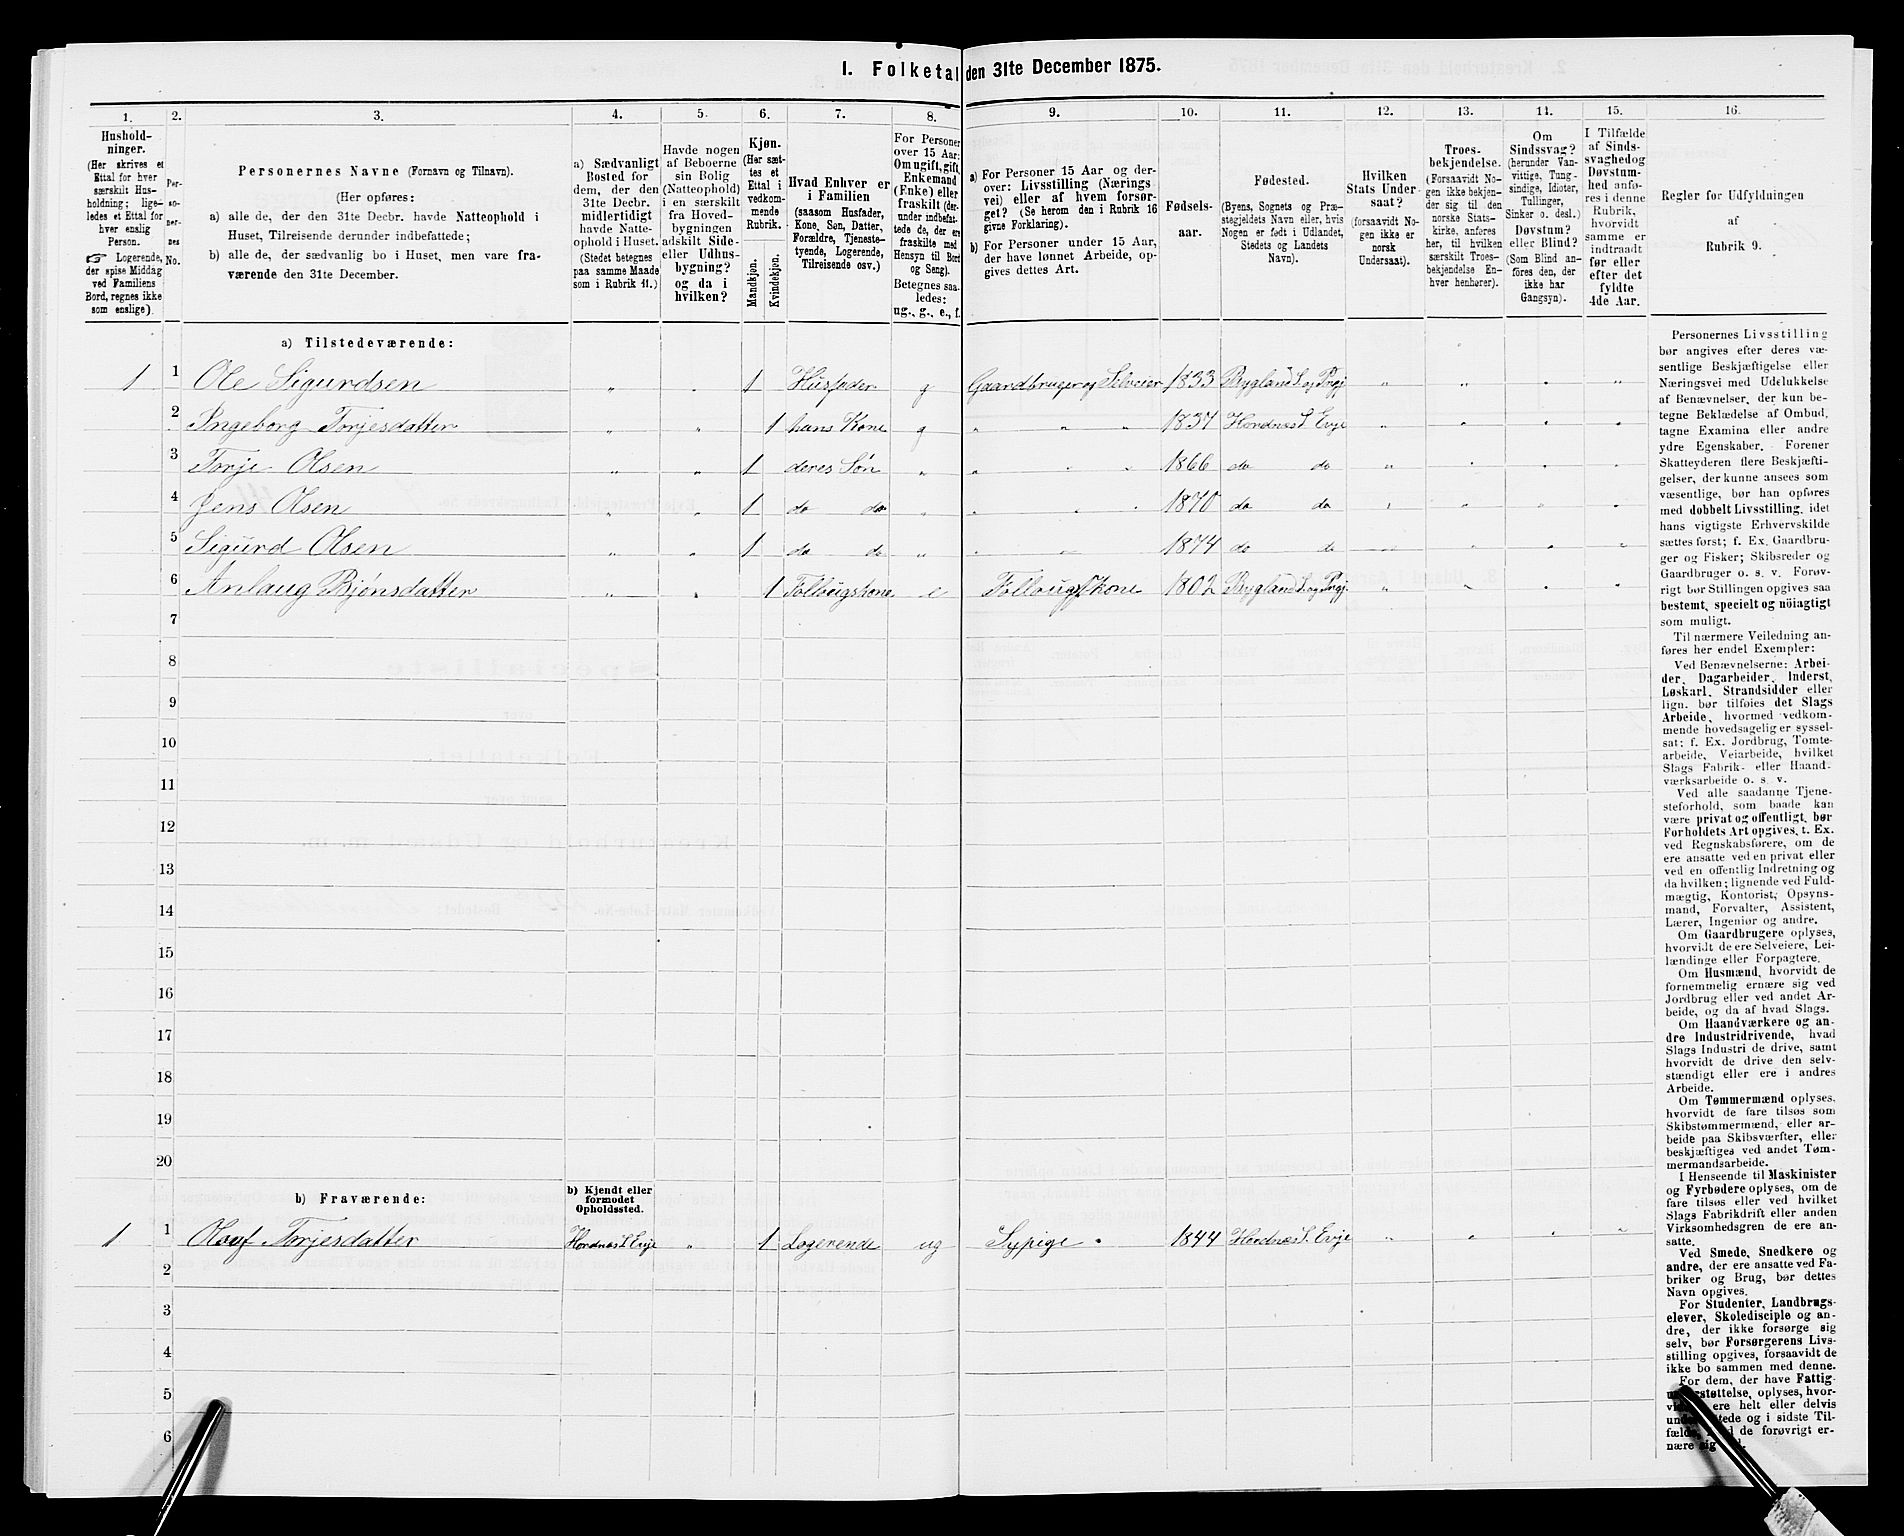 I. Folketal den 31te December 1875.
1. 2. 3. 4. 5. 6. 7. 8. 9. 10. 11. 12. 13. 14. 15. 16.
Hushold-
ninger.
(Her skrives et
Ettal for hver
særskilt Hus-
holdning; lige-
ledes et Ettal for
hver enslig
Person.
☞ Logerende,
der spise Middag
ved Familiens
Bord, regnes ikke
som enslige).
Per-
so-
ner-
nes
No.
Personernes Navne (Fornavn og Tilnavn).
(Her opføres:
a) alle de, der den 31te Decbr. havde Natteophold i
Huset, Tilreisende derunder indbefattede;
b) alle de, der sædvanlig bo i Huset, men vare fra-
værende den 31te December.
a) Sædvanligt
Bosted for
dem, der den
31te Decbr.
midlertidigt
havde Natte-
ophold i Huset.
(Stedet betegnes
paa samme Maade
som i Rubrik 11.)
Havde nogen
af Beboerne
sin Bolig
(Natteophold)
i en særskilt
fra Hoved-
bygningen
adskilt Side-
eller Udhus-
bygning?
og da i
hvilken?
Kjøn.
(Her sæt-
tes et
Ettal i
vedkom-
mende
Rubrik.
Mandkjøn.
Kvindekjøn.
Hvad Enhver er
i Familien
(saasom Husfader,
Kone, Søn, Datter,
Forældre, Tjeneste-
tyende, Logerende,
Tilreisende osv.)
For Personer
over 15 Aar:
Om ugift, gift,
Enkemand
(Enke) eller
fraskilt (der-
under indbefat-
tede de, der ere
fraskilte med
Hensyn til Bord
og Seng).
Betegnes saa-
ledes:
ug., g., e., f.
a) For Personer 15 Aar og der-
over: Livsstilling (Nærings-
vei) eller af hvem forsør-
get? (Se herom den i Rubrik 16
givne Forklaring).
b) For Personer under 15 Aar,
der have lønnet Arbeide, op-
gives dettes Art.
Fødsels-
aar.
Fødested.
(Byens, Sognets og Præ-
stegjeldets Navn eller, hvis
Nogen er født i Udlandet,
Stedets og Landets
Navn).
Hvilken
Stats Under-
saat?
(forsaavidt No-
gen ikke er
norsk
Undersaat).
Troes-
bekjendelse.
(Forsaavidt No-
gen ikke bekjen-
der sig til den
norske Stats-
kirke, anføres
her, til hvilken
særskilt Troes-
bekjendelse En-
hver henhører).
Om
Sindssvag?
(herunder Van-
vittige, Tung-
sindige, Idioter,
Tullinger,
Sinker o. desl.)
Døvstum?
eller Blind?
(Som Blind an-
føres den, der
ikke har
Gangsyn).
I Tilfælde
af Sinds-
svaghed og
Døvstum-
hed anfø-
res i denne
Rubrik,
hvorvidt
samme er
indtraadt
før eller
efter det
fyldte
4de Aar.
Regler for Udfyldningen
af
Rubrik 9.
a) Tilstedeværende:
1 1 Ole Sigurdsen " " 1 Husfader g Gaardbruger og Selveier 1833 Bygland S. og Prgj " " " "
2 Ingeborg Torjesdatter " " 1 hans Kone g " " " 1837 Hordnæs S. Evje " " " "
3 Torje Olsen " " 1 deres Søn " " " " 1866 do do " " " "
4 Jens Olsen " " 1 do do " " " " 1870 do do " " " "
5 Sigurd Olsen " " 1 do do " " " 1874 do do " " " "
6 Anlaug Bjønsdatter " " 1 Følbougskone e Følbougskone 1802 Bygland S. og Prgj. " " " "
7
8
9
10
11
12
13
14
15
16
17
18
19
20
b) Fraværende:
b) Kjendt eller
formodet
Opholdssted.
1 1 Olouf Torjesdatter Hordnæs S. Evje " 1 Logerende ug Sypige 1844 Hordnæs S. Evje " " " "
2
3
4
5
6
Personernes Livsstilling
bør angives efter deres væ-
sentlige Beskjæftigelse eller
Næringsvei med Udelukkelse
af Benævnelser, der kun be-
tegne Beklædelse af Ombud,
tagne Examina eller andre
ydre Egenskaber. Forener
Skatteyderen flere Beskjæfti-
gelser, der kunne ansees som
væsentlige, bør han opføres
med dobbelt Livsstilling, idet
hans vigtigste Erhvervskilde
sættes først; f. Ex. Gaardbru-
ger og Fisker; Skibsreder og
Gaardbruger o. s. v. Forøv-
rigt bør Stillingen opgives saa
bestemt, specielt og nöiagtigt
som muligt.
Til nærmere Veiledning an-
føres her endel Exempler:
Ved Benævnelserne: Arbei-
der, Dagarbeider, Inderst,
Løskarl, Strandsidder eller
lign. bør tilføies det Slags
Arbeide, hvormed vedkom-
mende hovedsagelig er syssel-
sat; f. Ex. Jordbrug, Tomte-
arbeide, Veiarbeide, hvilket
Slags Fabrik- eller Haand-
værksarbeide o. s. v.
Ved alle saadanne Tjene-
steforhold, som baade kan
være privat og offentligt, bør
Forholdets Art opgives, t. Ex.
ved Regnskabsførere, om de
ere ansatte ved en privat eller
ved en offentlig Indretning og
da hvilken; lignende ved Fuld-
mægtig, Kontorist, Opsyns-
mand, Forvalter, Assistent,
Lærer, Ingeniør og andre.
Om Gaardbrugere oplyses,
hvorvidt de ere Selveiere, Lei-
lændinge eller Forpagtere.
Om Husmænd, hvorvidt de
fornemmelig ernære sig ved
Jordbrug eller ved andet Ar-
beide, og da af hvad Slags.
Om Haandværkere og an-
dre Industridrivende, hvad
Slags Industri de drive, samt
hvorvidt de drive den selv-
stændigt eller ere i andres
Arbeide.
Om Tømmermænd oplyses,
hvorvidt de fare tilsøs som
Skibstømmermænd, eller ar-
beide paa Skibsværfter, eller
beskjæftiges ved andet Tøm-
mermandsarbeide.
I Henseende til Maskinister
og Fyrbødere oplyses, om de
fare tilsøs eller ved hvilket
Slags Fabrikdrift eller anden
Virksomhedsgren de ere an-
satte.
Ved Smede, Snedkere og
andre, der ere ansatte ved Fa-
briker og Brug, bør dettes
Navn opgives.
For Studenter, Landbrugs-
elever, Skoledisciple og an-
dre, der ikke forsørge sig
selv, bør Forsørgerens Livs-
stilling opgives, forsaavidt de
ikke bo sammen med denne.
For dem, der have Fattig-
støttelse, oplyses, hvor-
ere helt eller delvis
og i sidste Til-
de forøvrigt er-
nære sig